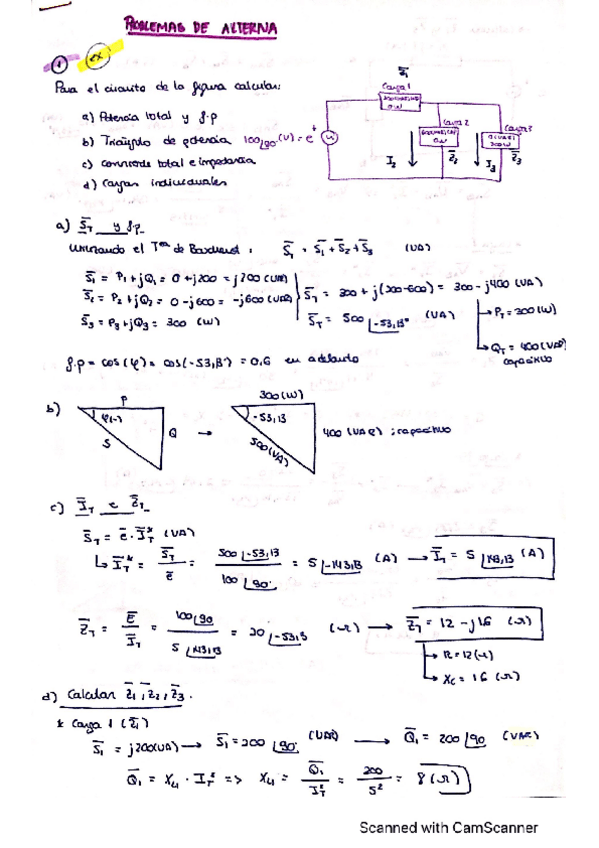 PROBLEMAS DE ALTERNA
① ex
Para el circuito de la figura calcular:
a) Potencia total y f.p
b) Triángulo de potencia
c) corriente total e impedancia
d) Cargas individuales
100∠90° (V) = e
Z̄₁
Carga 1
0W
Carga 2
0W
Carga 3
300W
I₂
Z̄₂
I₃
Z̄₃
a) S̄T y f.p
Utilizando el Tma de Boucherot : S̄T = S̄₁ + S̄₂ + S̄₃ (VA)
S̄₁ = P₁ + jQ₁ = 0 + j200 = j200 (VAR)
S̄₂ = P₂ + jQ₂ = 0 - j600 = -j600 (VAR)
S̄₃ = P₃ + jQ₃ = 300 (W)
S̄T = 300 + j(200-600) = 300 - j400 (VA)
S̄T = 500 ∠-53,13° (VA)
→ PT = 300 (W)
→ QT = 400 (VAR)
capacitivo
f.p = cos(φ) = cos(-53,13) = 0,6 en adelanto
b) P
φ(-)
S
Q
→
300 (W)
-53,13
500 (VA)
400 (VAR) ; capacitivo
c) ĪT e Z̄T
S̄T = ē · ĪT* (VA)
↳ ĪT* = S̄T / ē = 500 ∠-53,13 / 100 ∠90° = 5 ∠-143,13 (A) → ĪT = 5 ∠143,13 (A)
Z̄T = Ē / ĪT = 100 ∠90 / 5 ∠143,13 = 20 ∠-53,13 (Ω) → Z̄T = 12 - j16 (Ω)
→ R = 12 (Ω)
→ Xc = 16 (Ω)
d) Calcular Z̄₁, Z̄₂, Z̄₃.
* Carga 1 (Z̄₁)
S̄₁ = j200(VA) → S̄₁ = 200 ∠90° (VAR) → Q̄₁ = 200 ∠90 (VAR)
Q̄₁ = XL1 · IT² => XL1 = Q̄₁ / IT² = 200 / 5² = 8 (Ω)
Scanned with CamScanner